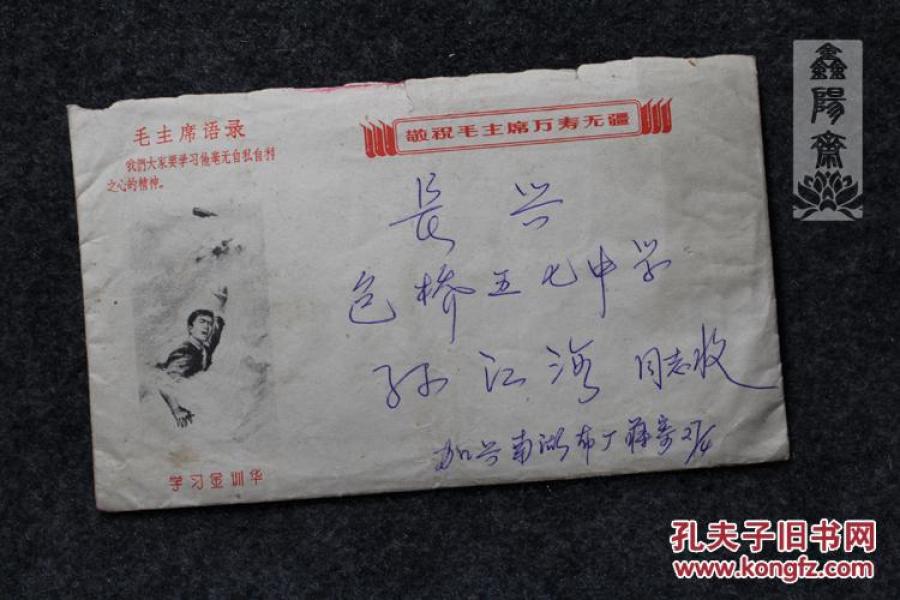 毛主席语录
我們大家要学习他毫无自私自利
之心的精神。
敬祝毛主席万寿无疆
長兴
包桥五七中学
孙江海 同志收
加兴南湖布厂薛寄 27/4
学习金训华
鑫陽齋
孔夫子旧书网
www.kongfz.com